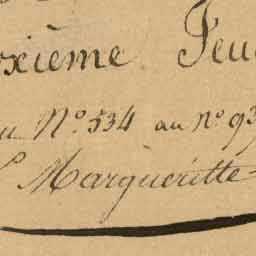 uxième Feu
u N° 534 au N° 93
Margueritte